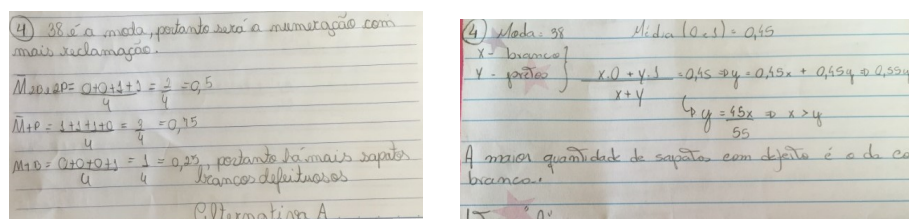 4 38 é a moda, portanto será a numeração com
mais reclamação.
= 0+0+1+1 = 2 = 0,5
4 4
M+P = 1+1+1+0 = 3 = 0,75
4 4
= 0+0+0+1 = 1 = 0,25, portanto há mais sapatos
4 4
brancos defeituosos
Alternativa A
4 Moda: 38 Média (0 e 1) = 0,45
X - branco
Y - preto
x.0 + y.1 = 0,45 ⇒ y = 0,45x + 0,45y ⇒ 0,55y
x + y
↳ y = 45x ⇒ x > y
55
A maior quantidade de sapatos com defeito é o da
branco.